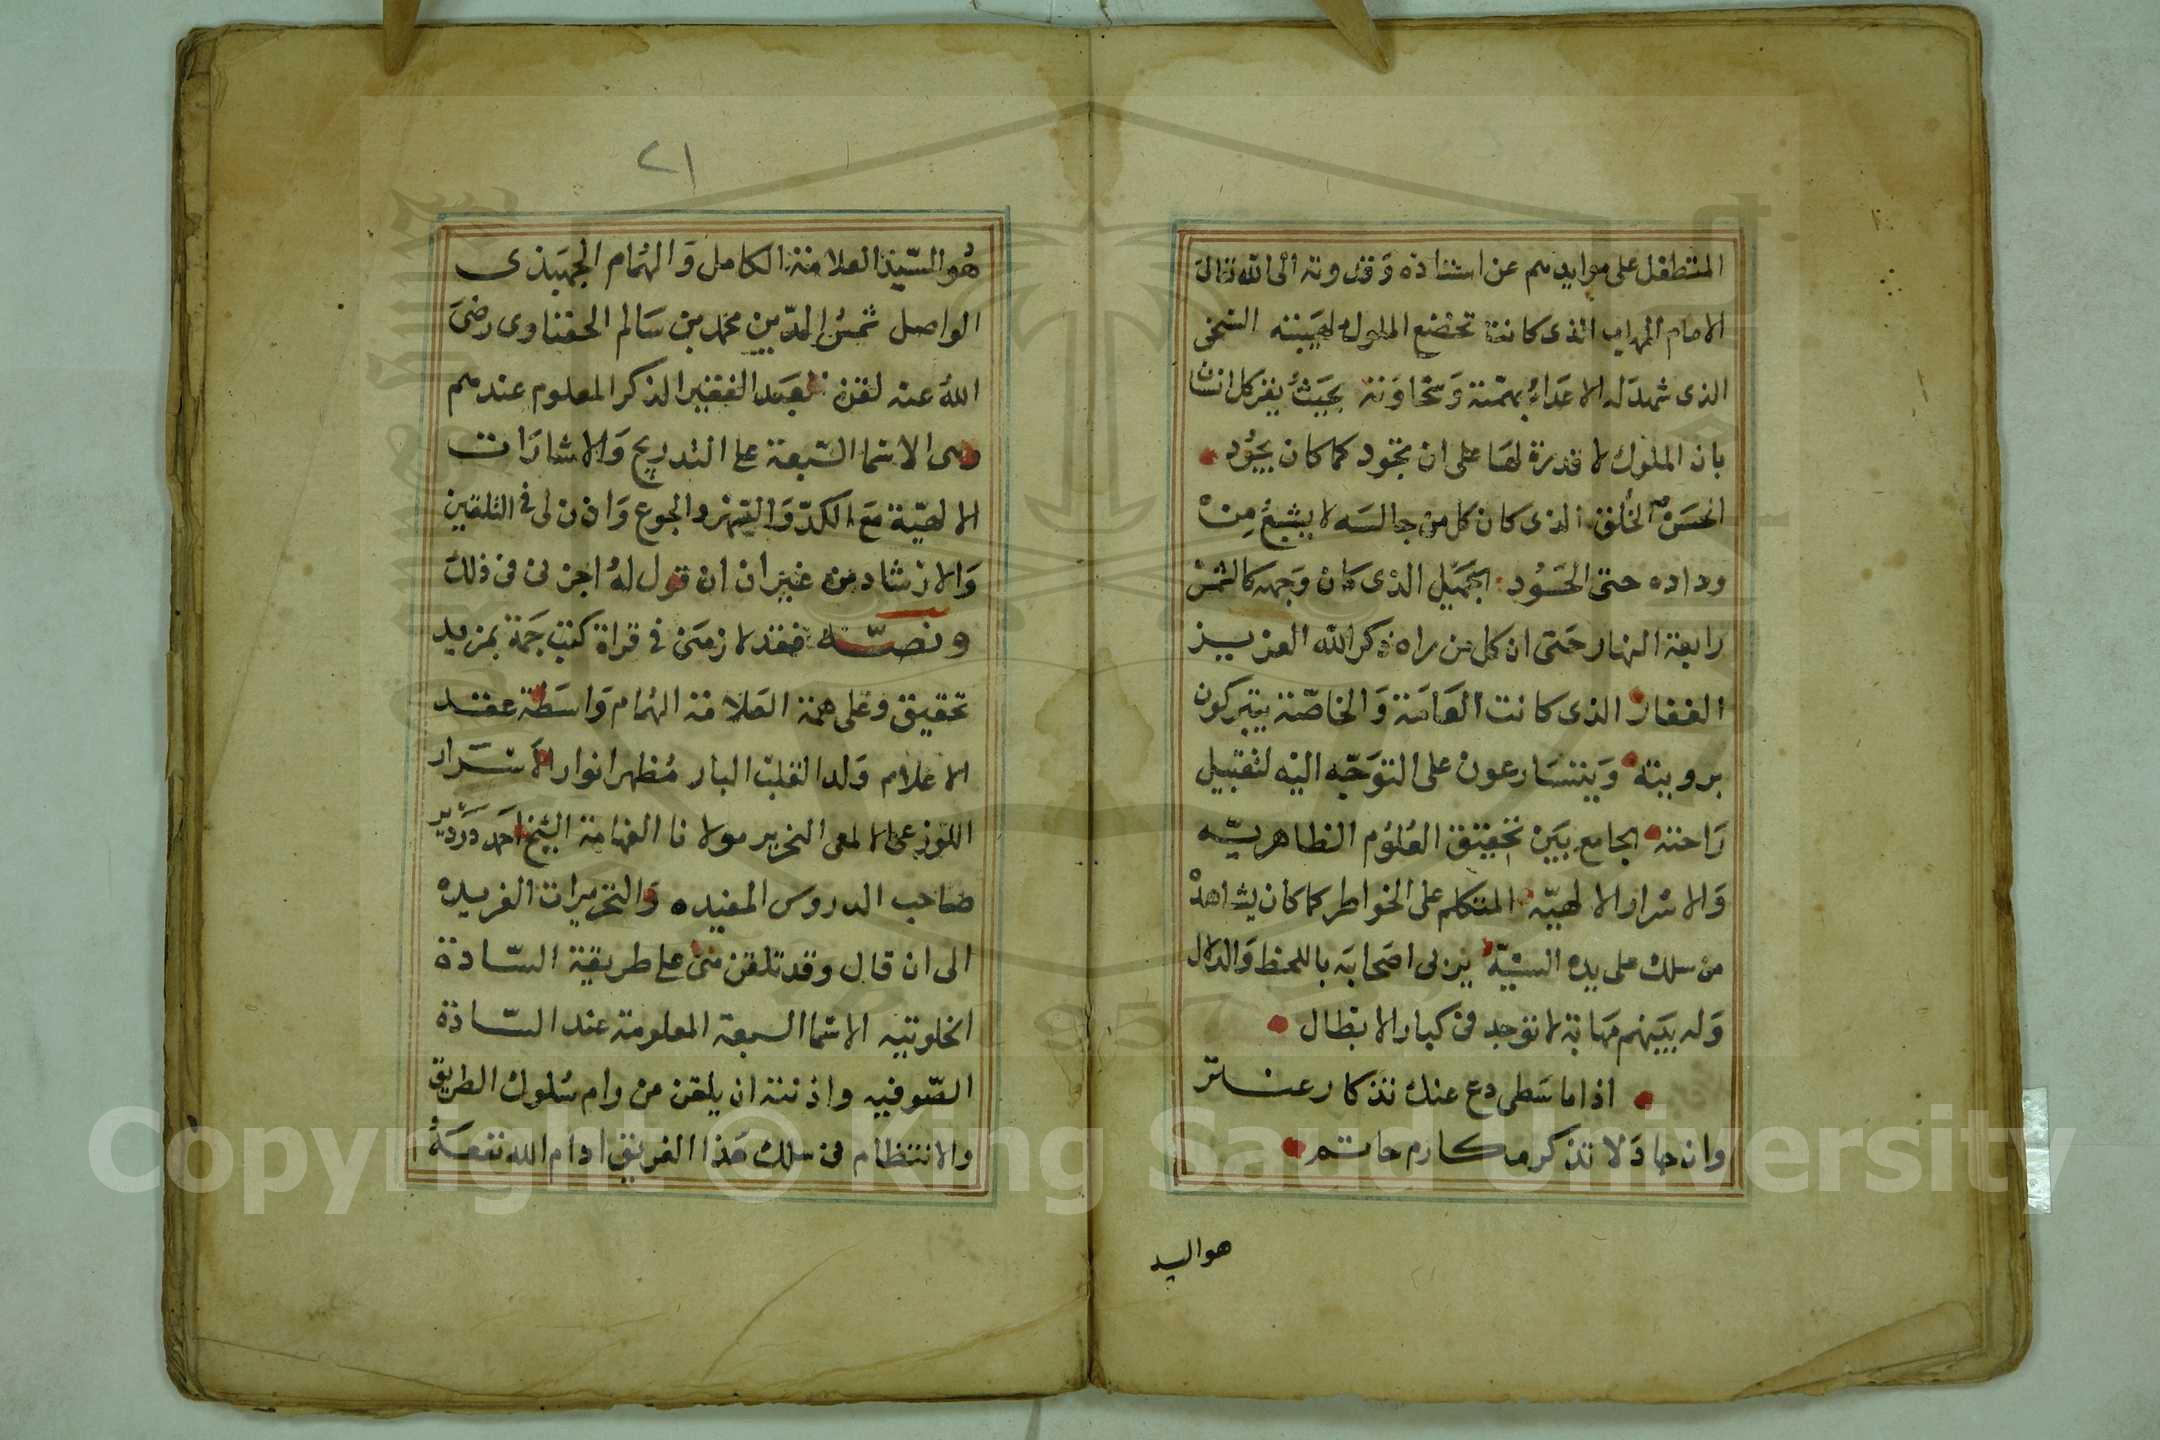 المتطفل على موايدهم عن استاذه وقدوته الى الله تعالى
الامام المهاب الذى كانت تخضع الملوك لهيبته السخى
الذى شهد له الاعداء بهمته وسخاوته بحيث يقر كل انسان
بان الملوك لا قدرة لها على ان تجود كما كان يجود
الحسن الخلق الذى كان كل من جالسه لا يشبع منه
وداده حتى الحسود الجميل الذى كان وجهه كالشمس
رابعة النهار حتى ان كل من راه ذكر الله العزيز
الغفار الذى كانت العامة والخاصة يتبركون
برويته ويتسارعون على التوجه اليه لتقبيل
راحته الجامع بين تحقيق العلوم الظاهرية
والاسرار الالهية المتكلم على الخواطر كما كان يشاهده
من سلك على يده السنية يربى اصحابه باللحظ والدلال
وله بينهم مهابة لا توجد فى كبار الابطال
اذا ما سطى دع عنك تذكار عنتر
وان جاد لا تذكر مكارم حاتم
هو السيد
٢١
هو السيد العلامة الكامل والهمام الجهبذى
الواصل شمس الدين محمد بن سالم الحفناوى رضى
الله عنه لقن العبد الفقير الذكر المعلوم عندهم
وهى الاسما السبعة على التدريج والاشارات
الالهية مع الكد والسهر والجوع واذن لى فى التلقين
والارشاد من غير ان اقول له اجزنى فى ذلك
ونصه فقد لازمنى فى قراة كتب جمة بمزيد
تحقيق وعلى همة العلامة الهمام واسطة عقد
الاعلام ولد القلب البار مظهر انوار الاسرار
اللوزعى الالمعى النحرير مولانا الفهامة الشيخ احمد دردير
صاحب الدروس المفيده والتحريرات الفريده
الى ان قال وقد تلقن منى على طريقة السادة
الخلوتيه الاسما السبعة المعلومة عند السادة
الصوفيه واذنته ان يلقن من رام سلوك الطريق
والانتظام فى سلك هذا الفريق ادام الله نفعه
Copyright © King Saud University
1957